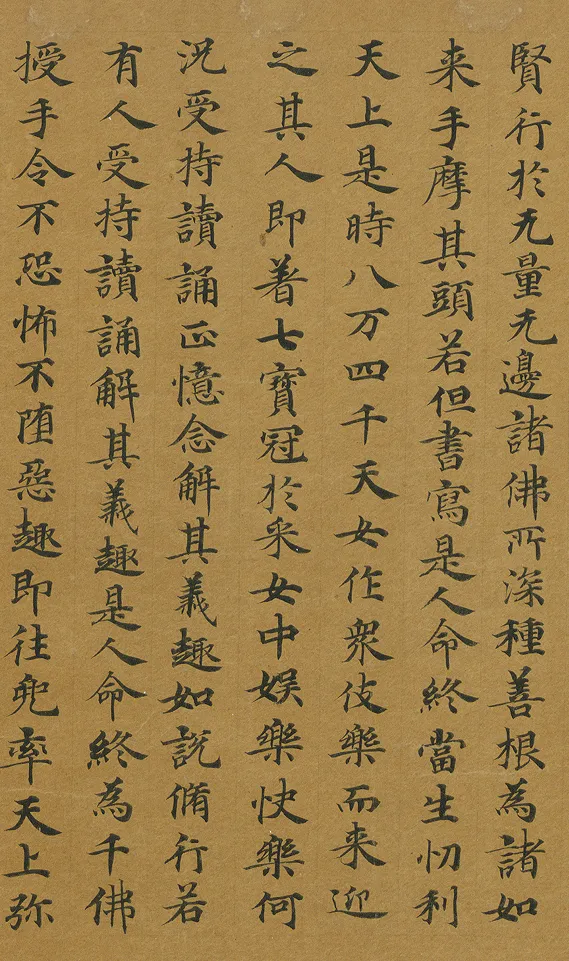 賢行於无量无邊諸佛所深種善根為諸如
来手摩其頭若但書寫是人命終當生忉利
天上是時八万四千天女作衆伎樂而来迎
之其人即著七寶冠於采女中娱樂快樂何
況受持讀誦正憶念解其義趣如說脩行若
有人受持讀誦解其義趣是人命終為千佛
授手令不恐怖不堕惡趣即往兜率天上弥